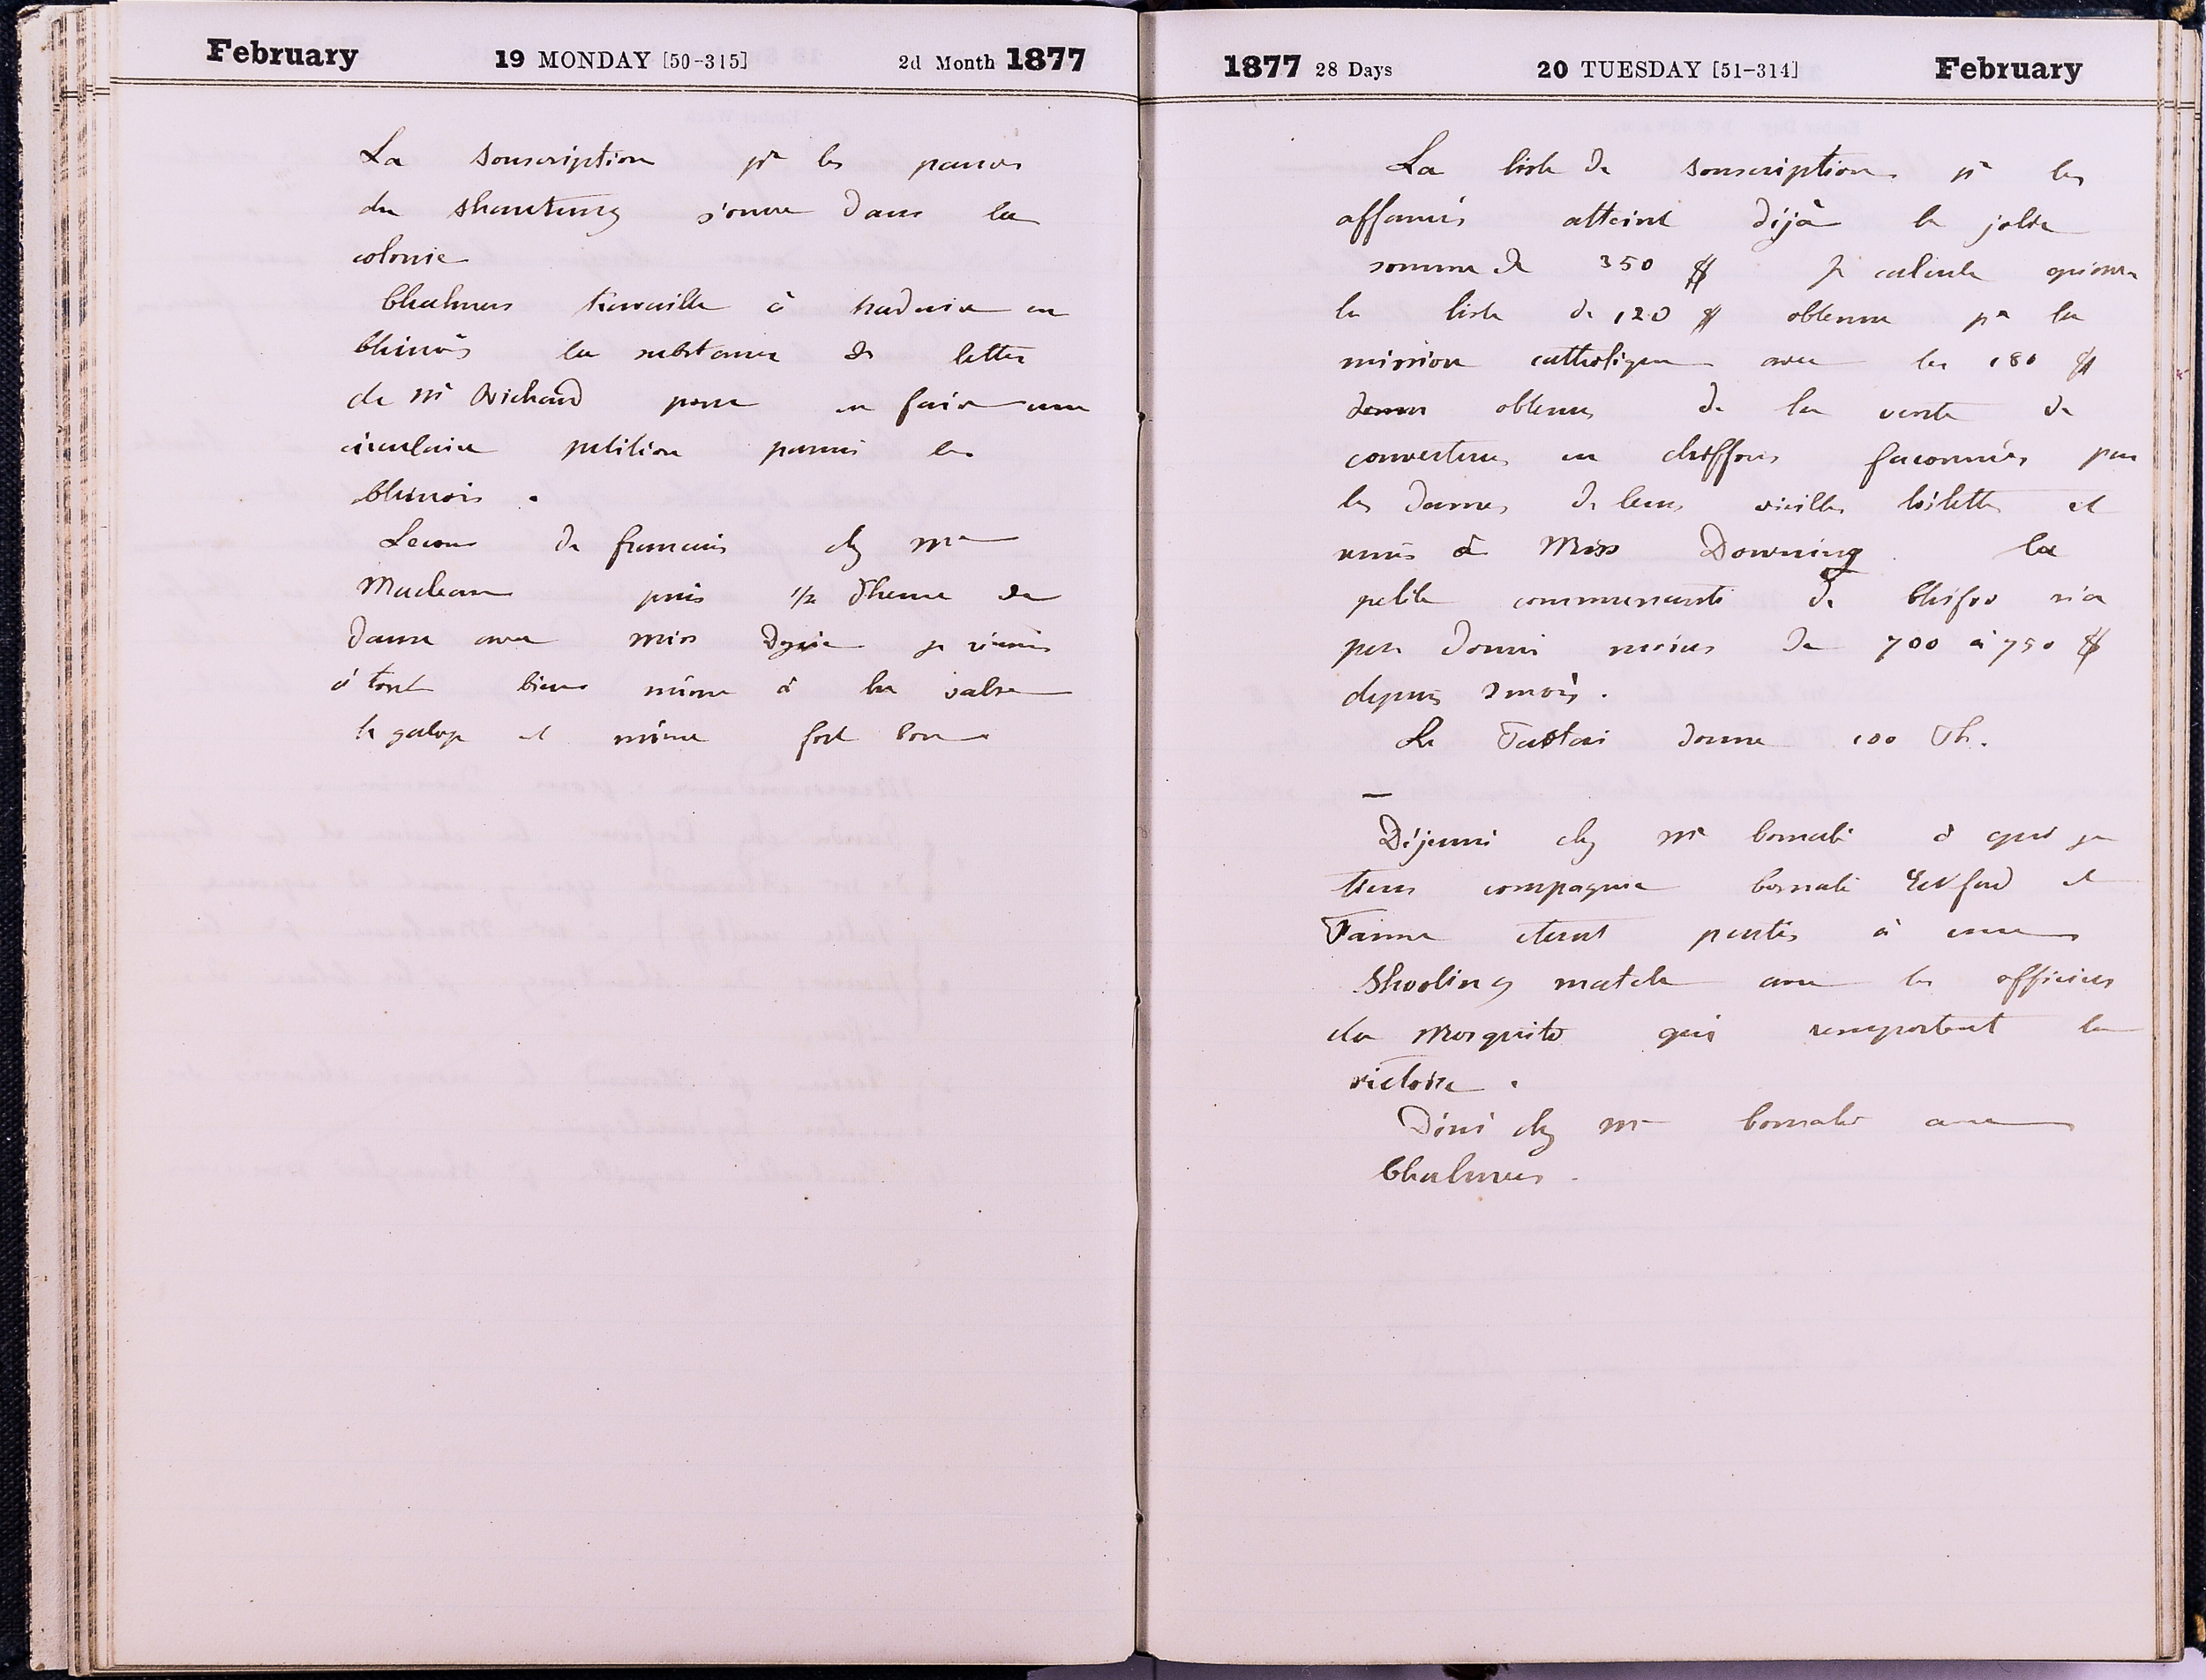 February 19 MONDAY [50-315] 2d Month 1877
La souscription pr les pauvres
du Shantung s'ouvre dans la
colonie
Chalmers travaille à traduire en
Chinois la substance des lettres
de Mr Richard pour en faire une
circulaire petition parmi les
Chinois.
Lecons de francais chez Me
Maclean puis 1/2 d'heure de
danse avec miss je réussis
à tout bien même à la valse
le galop et même fort bon
1877 28 Days 20 TUESDAY [51-314] February
La liste de souscriptions pr les
affamés atteint déjà la jolie
somme de 350 $ Je calcule qu'avec
la liste de 120 $ obtenue pr la
mission catholique avec les 180 $
obtenus de la vente de
couvertures en chiffons faconnées par
les dames de leurs vieilles toilettes et
remis à Miss Downing la
petite communauté de Chifoo n'a
pas donné moins de 700 à 750 $
depuis 2 mois.
Le Taotai donne 100 Th.
—
Déjeuné chez Me Cornabé à qui je
tiens compagnie Cornabé Eckford et
Fannie etant partis à une
Shooting match avec les officiers
du Mosquito qui remportent la
victoire.
Diné chez Me Cornabé avec
Chalmers.